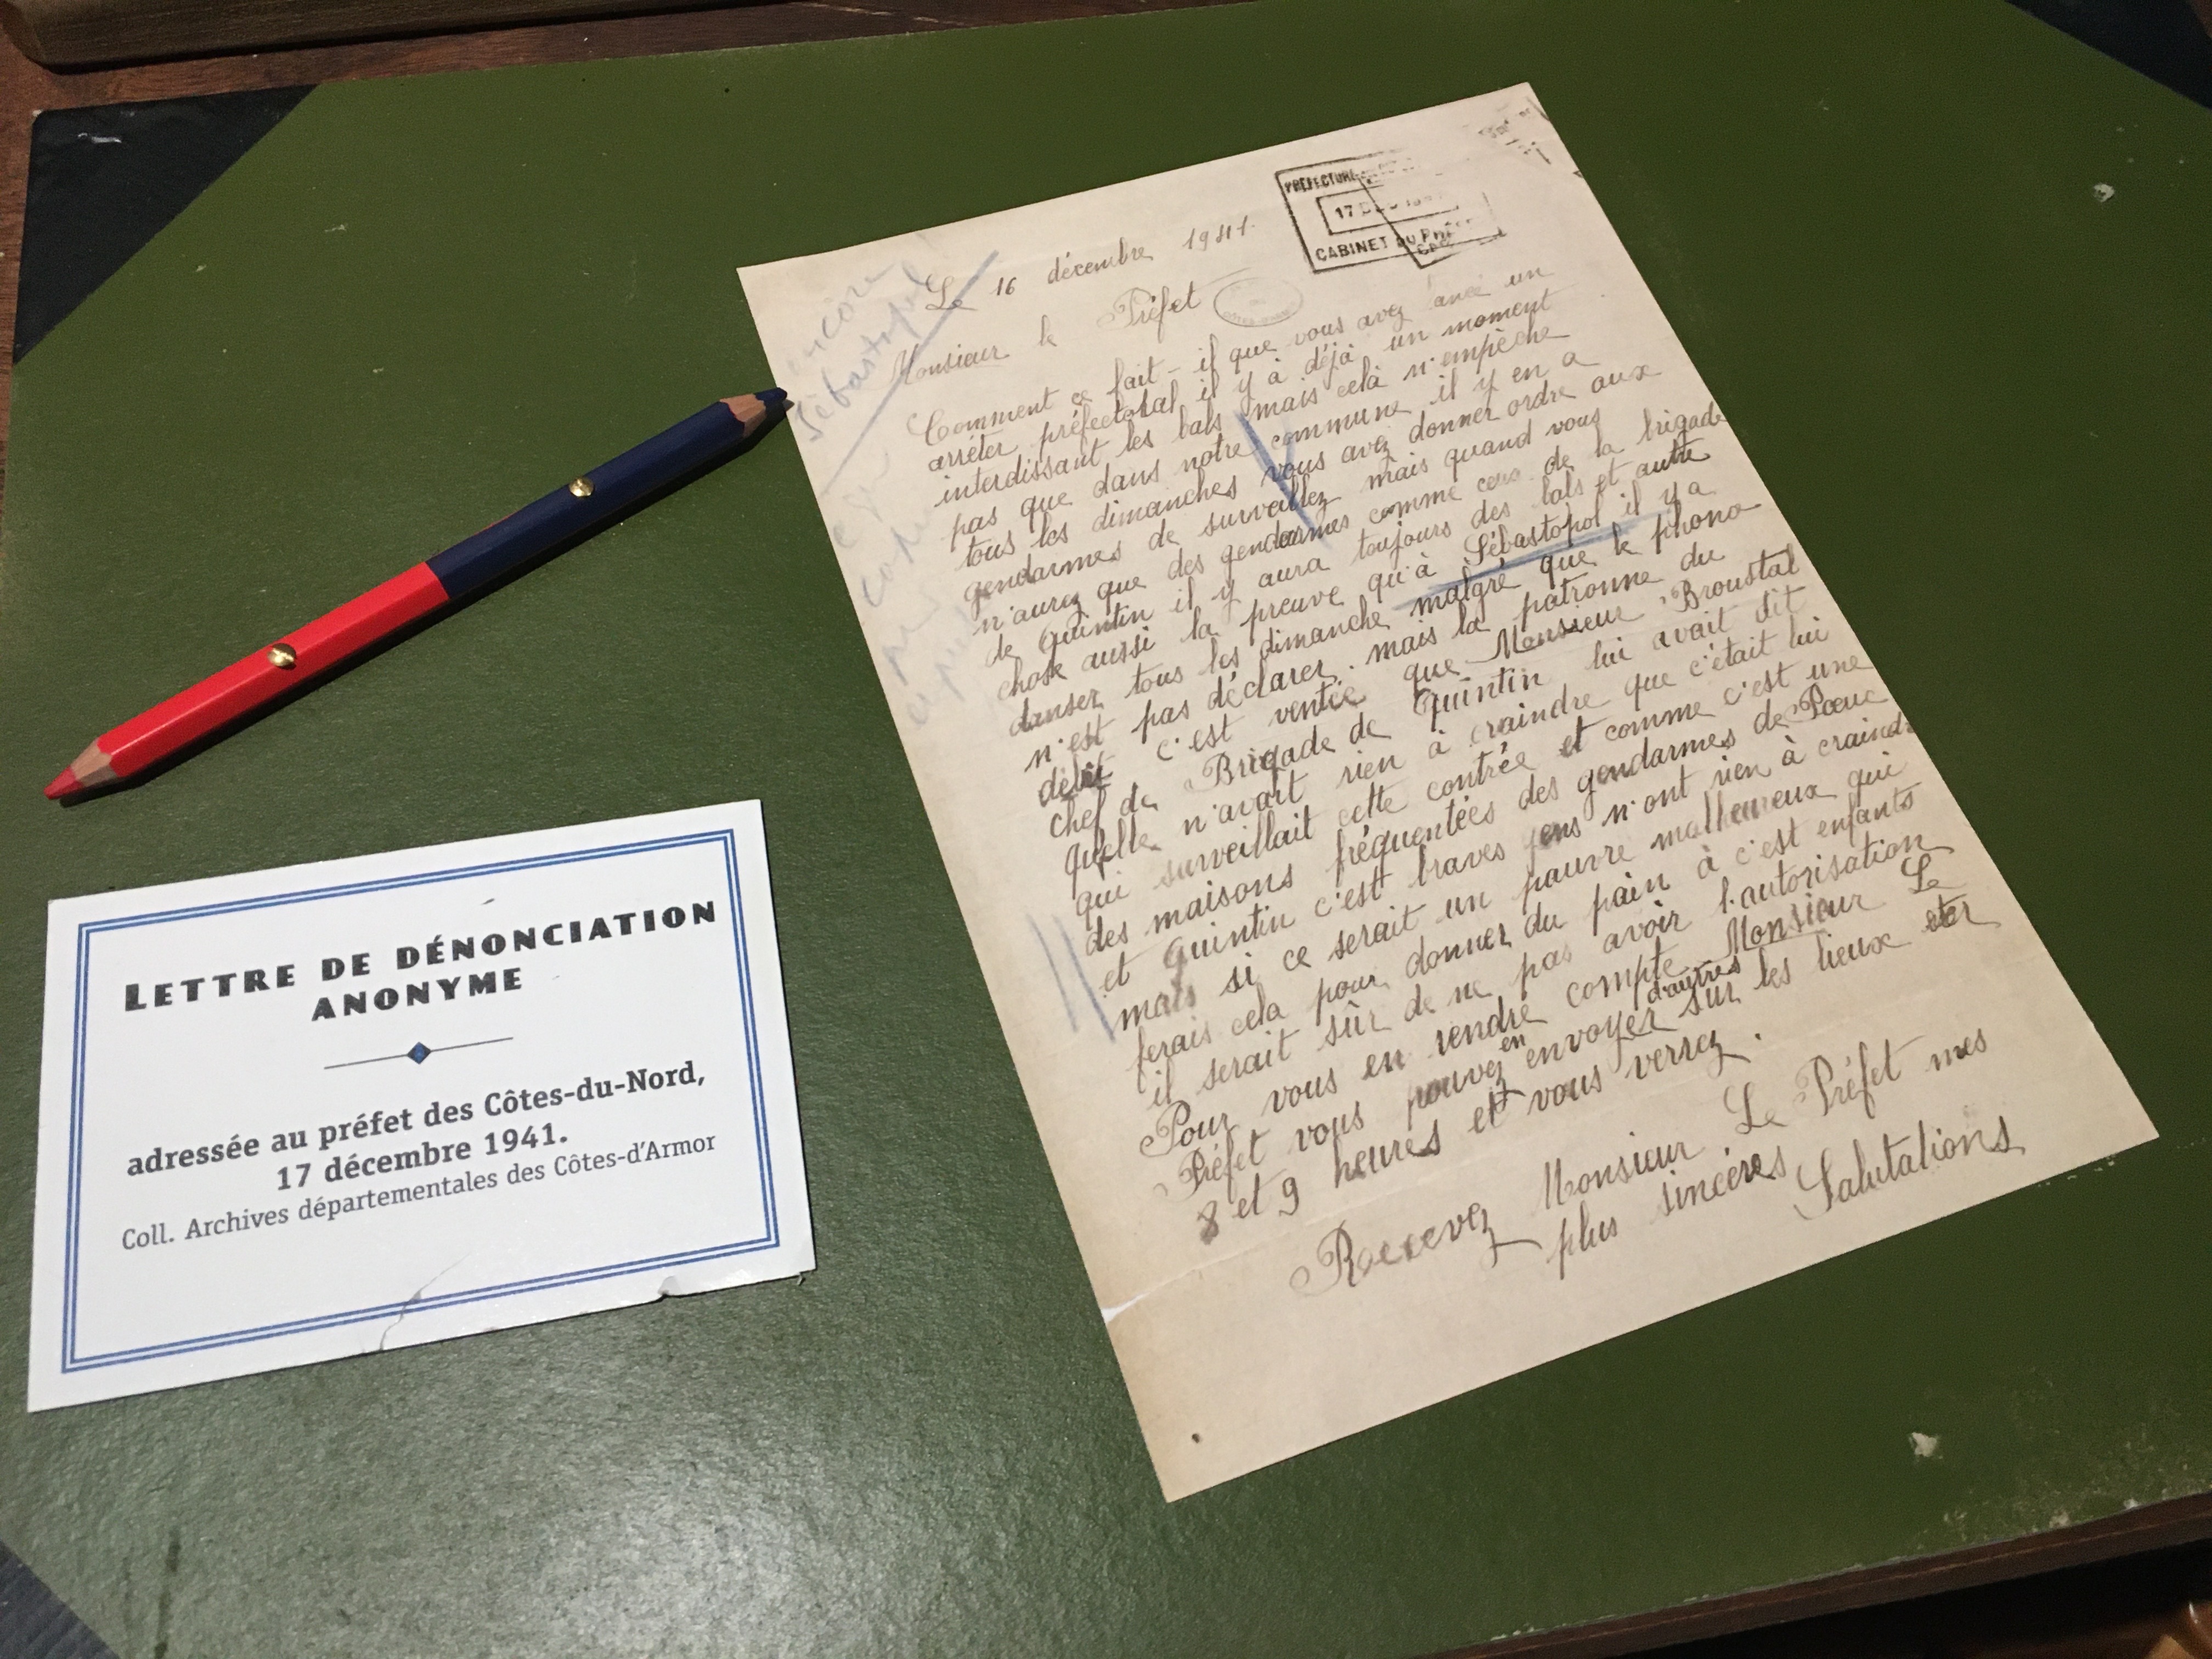 LETTRE DE DÉNONCIATION
ANONYME
adressée au préfet des Côtes-du-Nord,
17 décembre 1941.
Coll. Archives départementales des Côtes-d'Armor
PRÉFECTURE
17 DEC
CABINET DU PRÉFET
encore
Sébastopol
Le 16 décembre 1941.
Monsieur le Préfet
Comment ce fait-il que vous avez un
arrêter préfectoral il y à déjà un moment
interdissant les bals mais celà n'empèche
pas que dans notre commune il y en a
tous les dimanches vous avez donner ordre aux
gendarmes de surveillez mais quand vous
n'aurez que des gendarmes comme ceus de la brigade
de Quintin il y aura toujours des bals et autre
chose aussi la preuve qu'à Sébastopol il y a
danser tous les dimanche malgré que le phono
n'est pas déclarer. mais la patronne du
débit c'est ventée que Monsieur Broustal
chef de Brigade de Quintin lui avait dit
quelle n'avait rien à craindre que c'était lui
qui surveillait cette contrée et comme c'est une
des maisons fréquentées des gendarmes de Pœuc
et Quintin c'est braves gens n'ont rien à craindre
mais si ce serait un pauvre malheureux qui
ferais cela pour donner du pain à c'est enfants
il serait sûr de ne pas avoir l'autorisation
Pour vous en rendre compte Monsieur Le
Préfet vous pouvez en envoyer d'autres sur les lieux
8 et 9 heures et vous verrez.
Recevez Monsieur Le Préfet mes
plus sincères Salutations